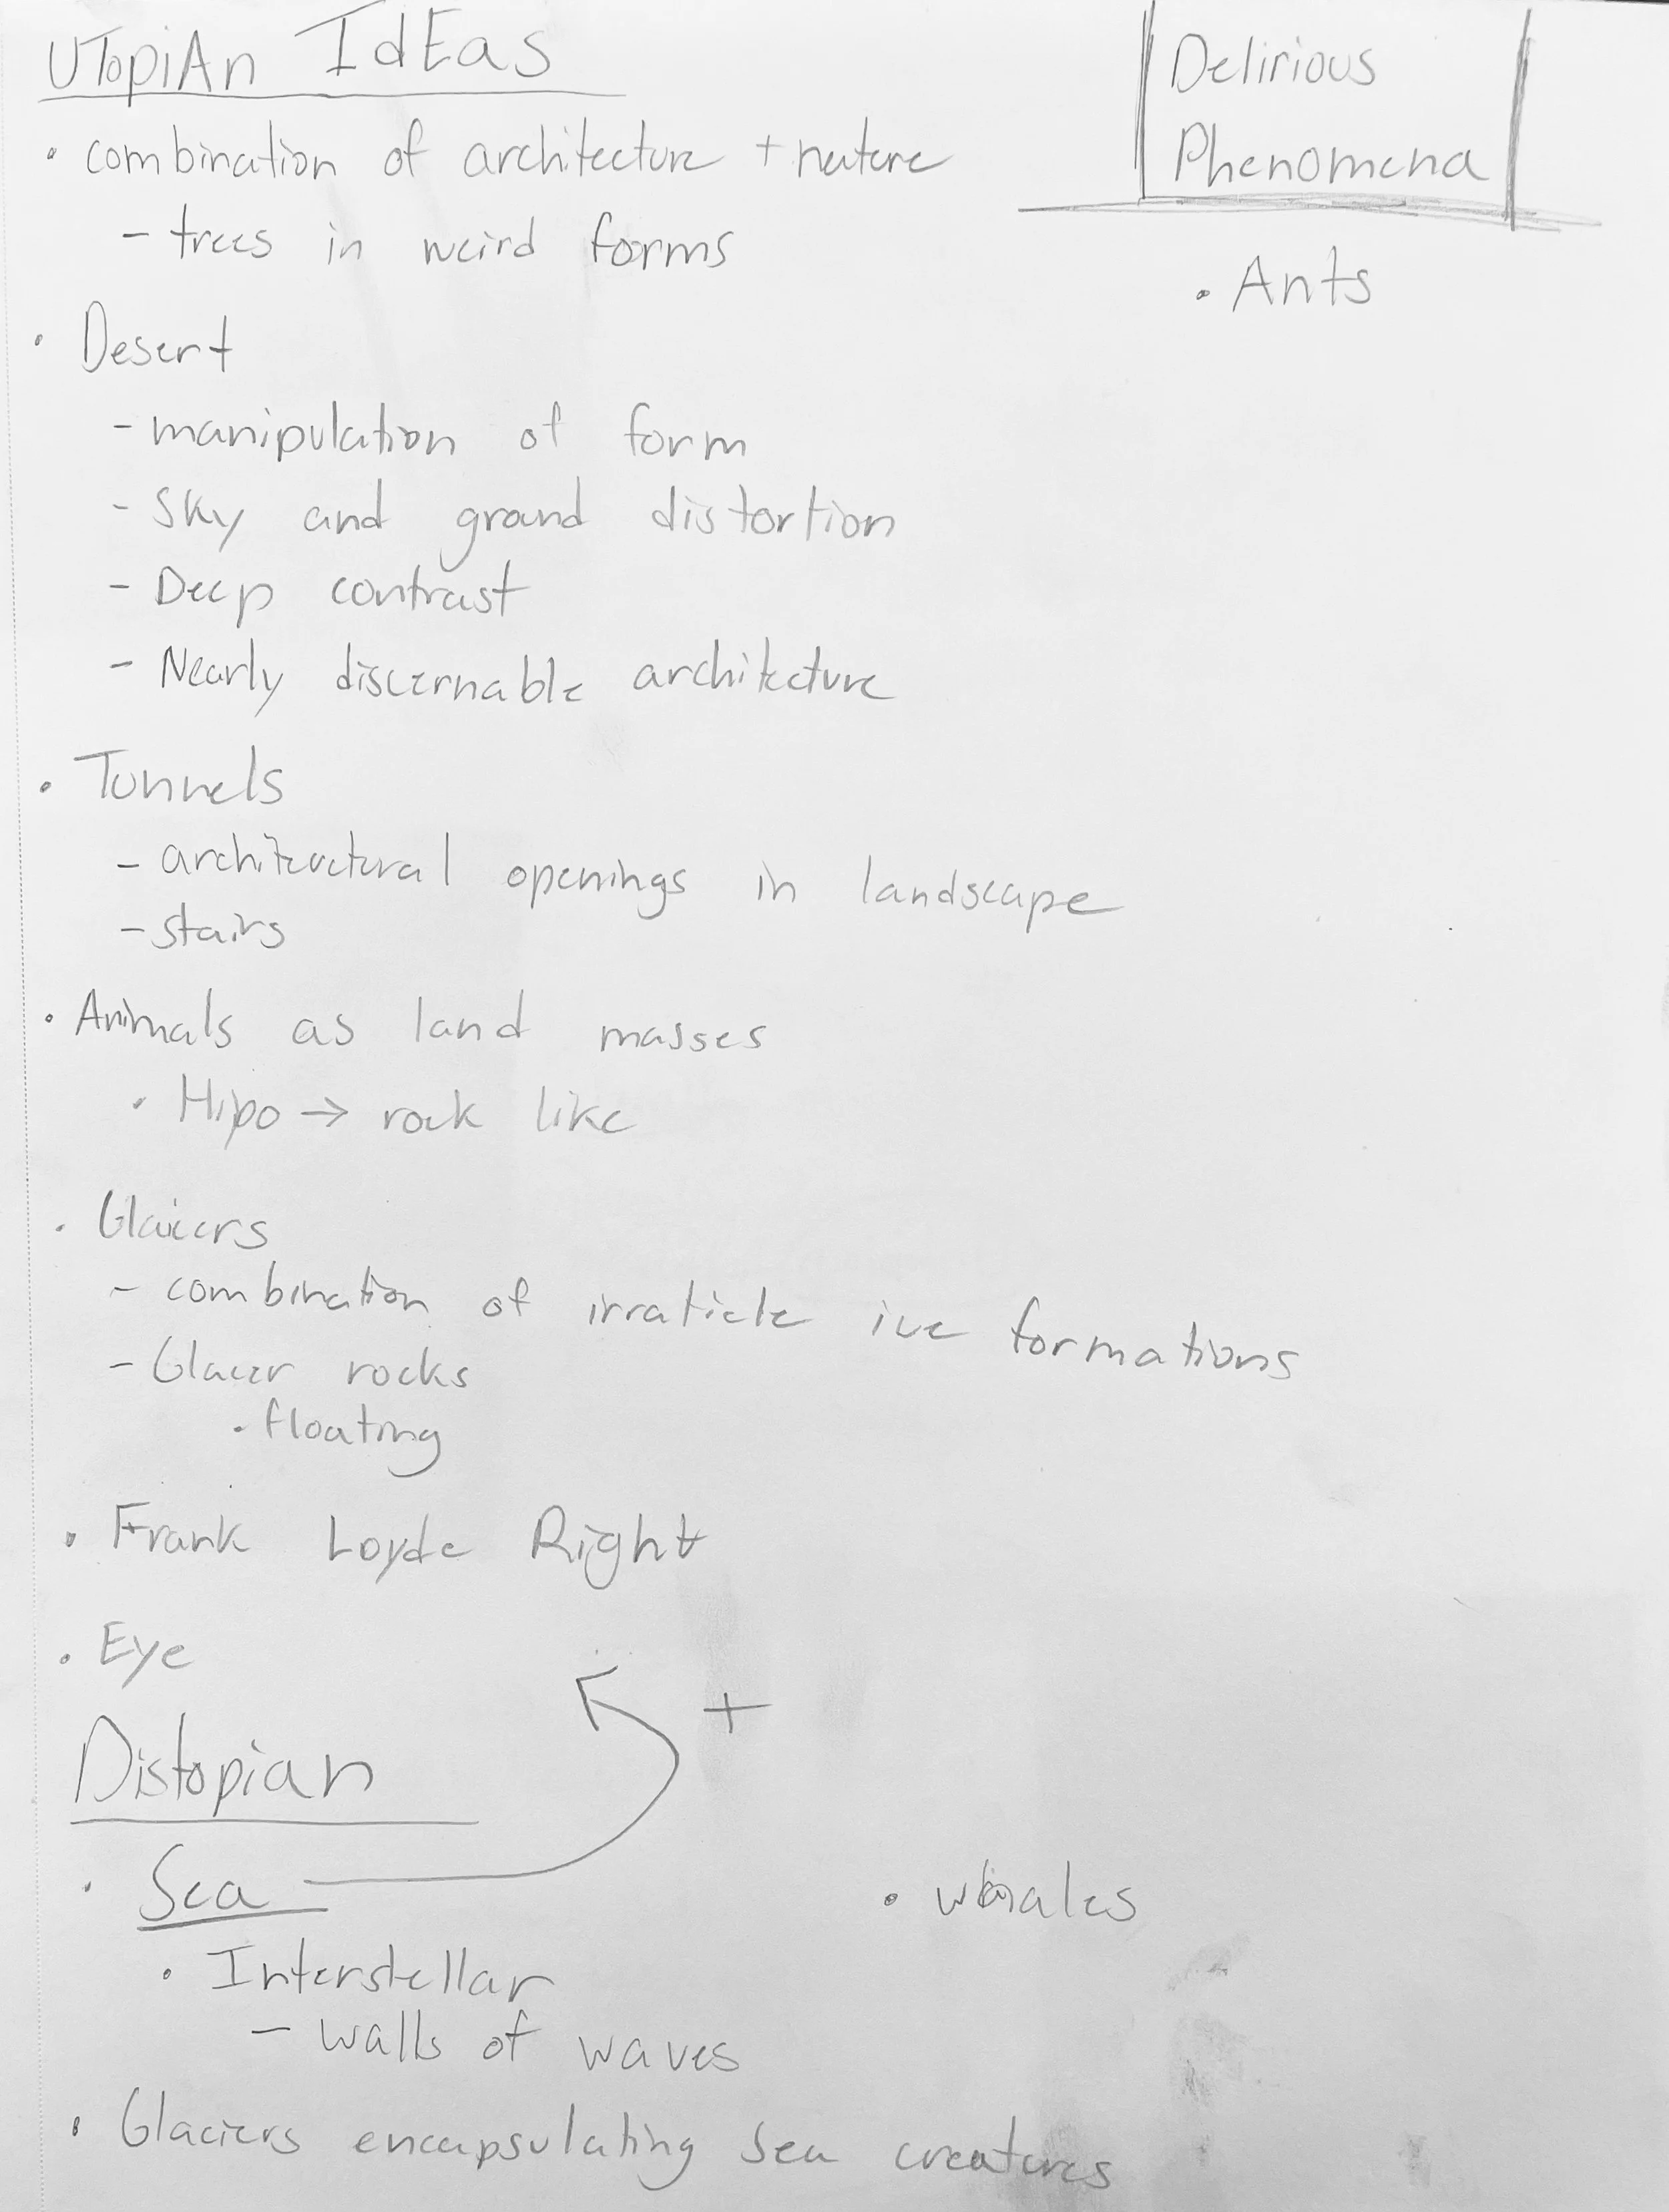 UTopiAn IdEas
• combination of architecture + nature
- trees in weird forms
• Desert
- manipulation of form
- Sky and ground distortion
- Deep contrast
- Nearly discernable architecture
• Tunnels
- architectural openings in landscape
- stairs
• Animals as land masses
• Hipo → rock like
• Glaicers
- combination of irraticle ice formations
- Glacer rocks
• floating
• Frank Loyde Right
• Eye
Distopian
+
• Sea
• Interstellar
- walls of waves
• Glaciers encapsulating Sea creatures
Delirious
Phenomena
• Ants
• whales